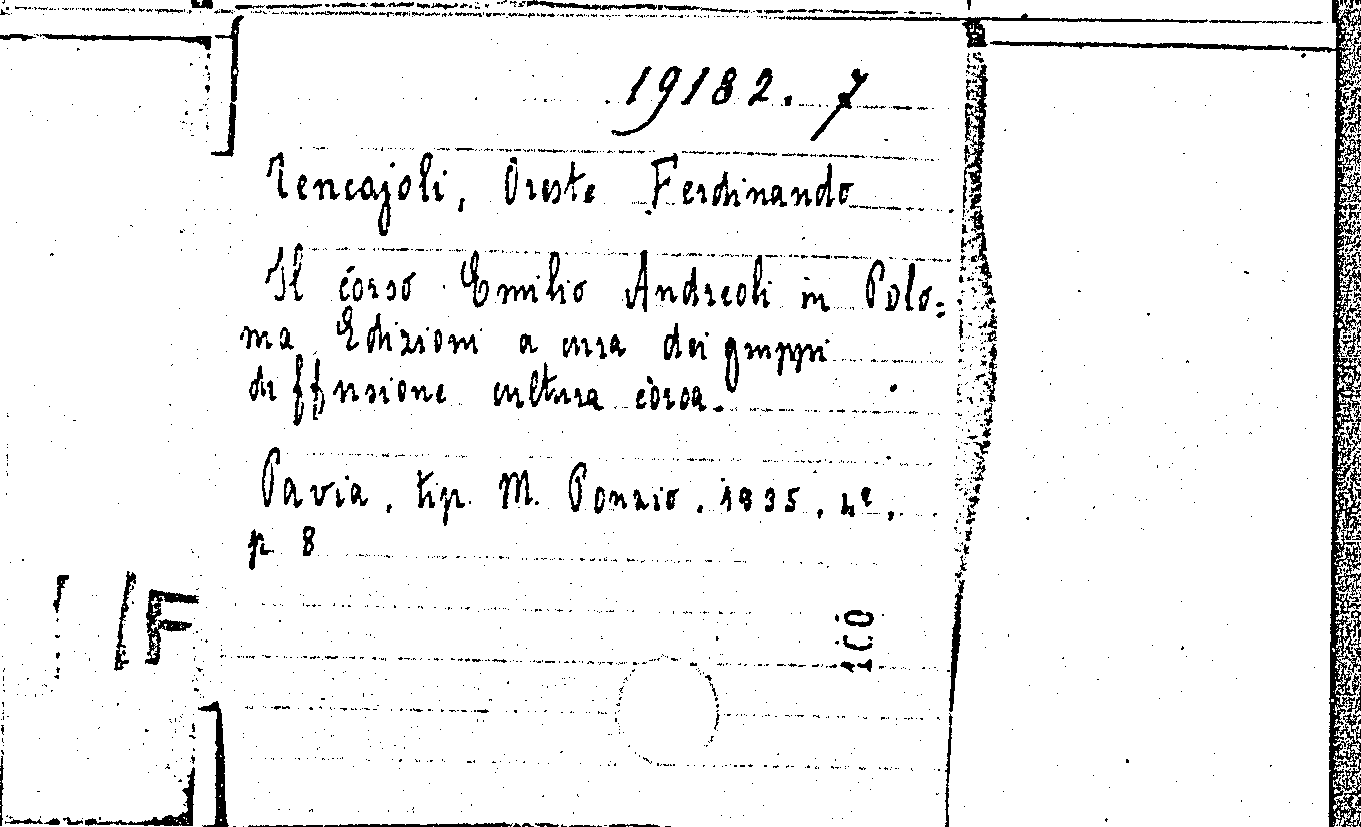 19182. 7
Tencajoli, Oreste Ferdinando
Il còrso Emilio Andreoli in Polo=
nia Edizioni a cura dei gruppi
di ffusione cultura còrsa.
Pavia, tip. M. Ponzio. 1935, 4º,
p 8
ico
F